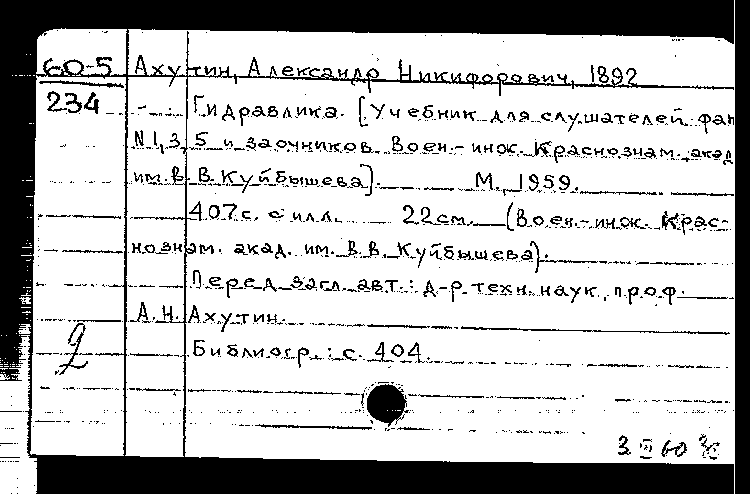 60-5 Ахутин, Александр Никифорович, 1892
234 - . Гидравлика. [Учебник для слушателей фак
N 1, 3, 5 и заочников Воен.-инж. Краснознам. акад
им. В. В. Куйбышева]. М., 1959.
407 с. с илл. 22 см. (Воен.-инж. Крас-
нознам. акад. им. В. В. Куйбышева).
Перед загл. авт.: д-р техн. наук, проф.
А. Н. Ахутин.
2 Библиогр.: с. 404.
3 III 60